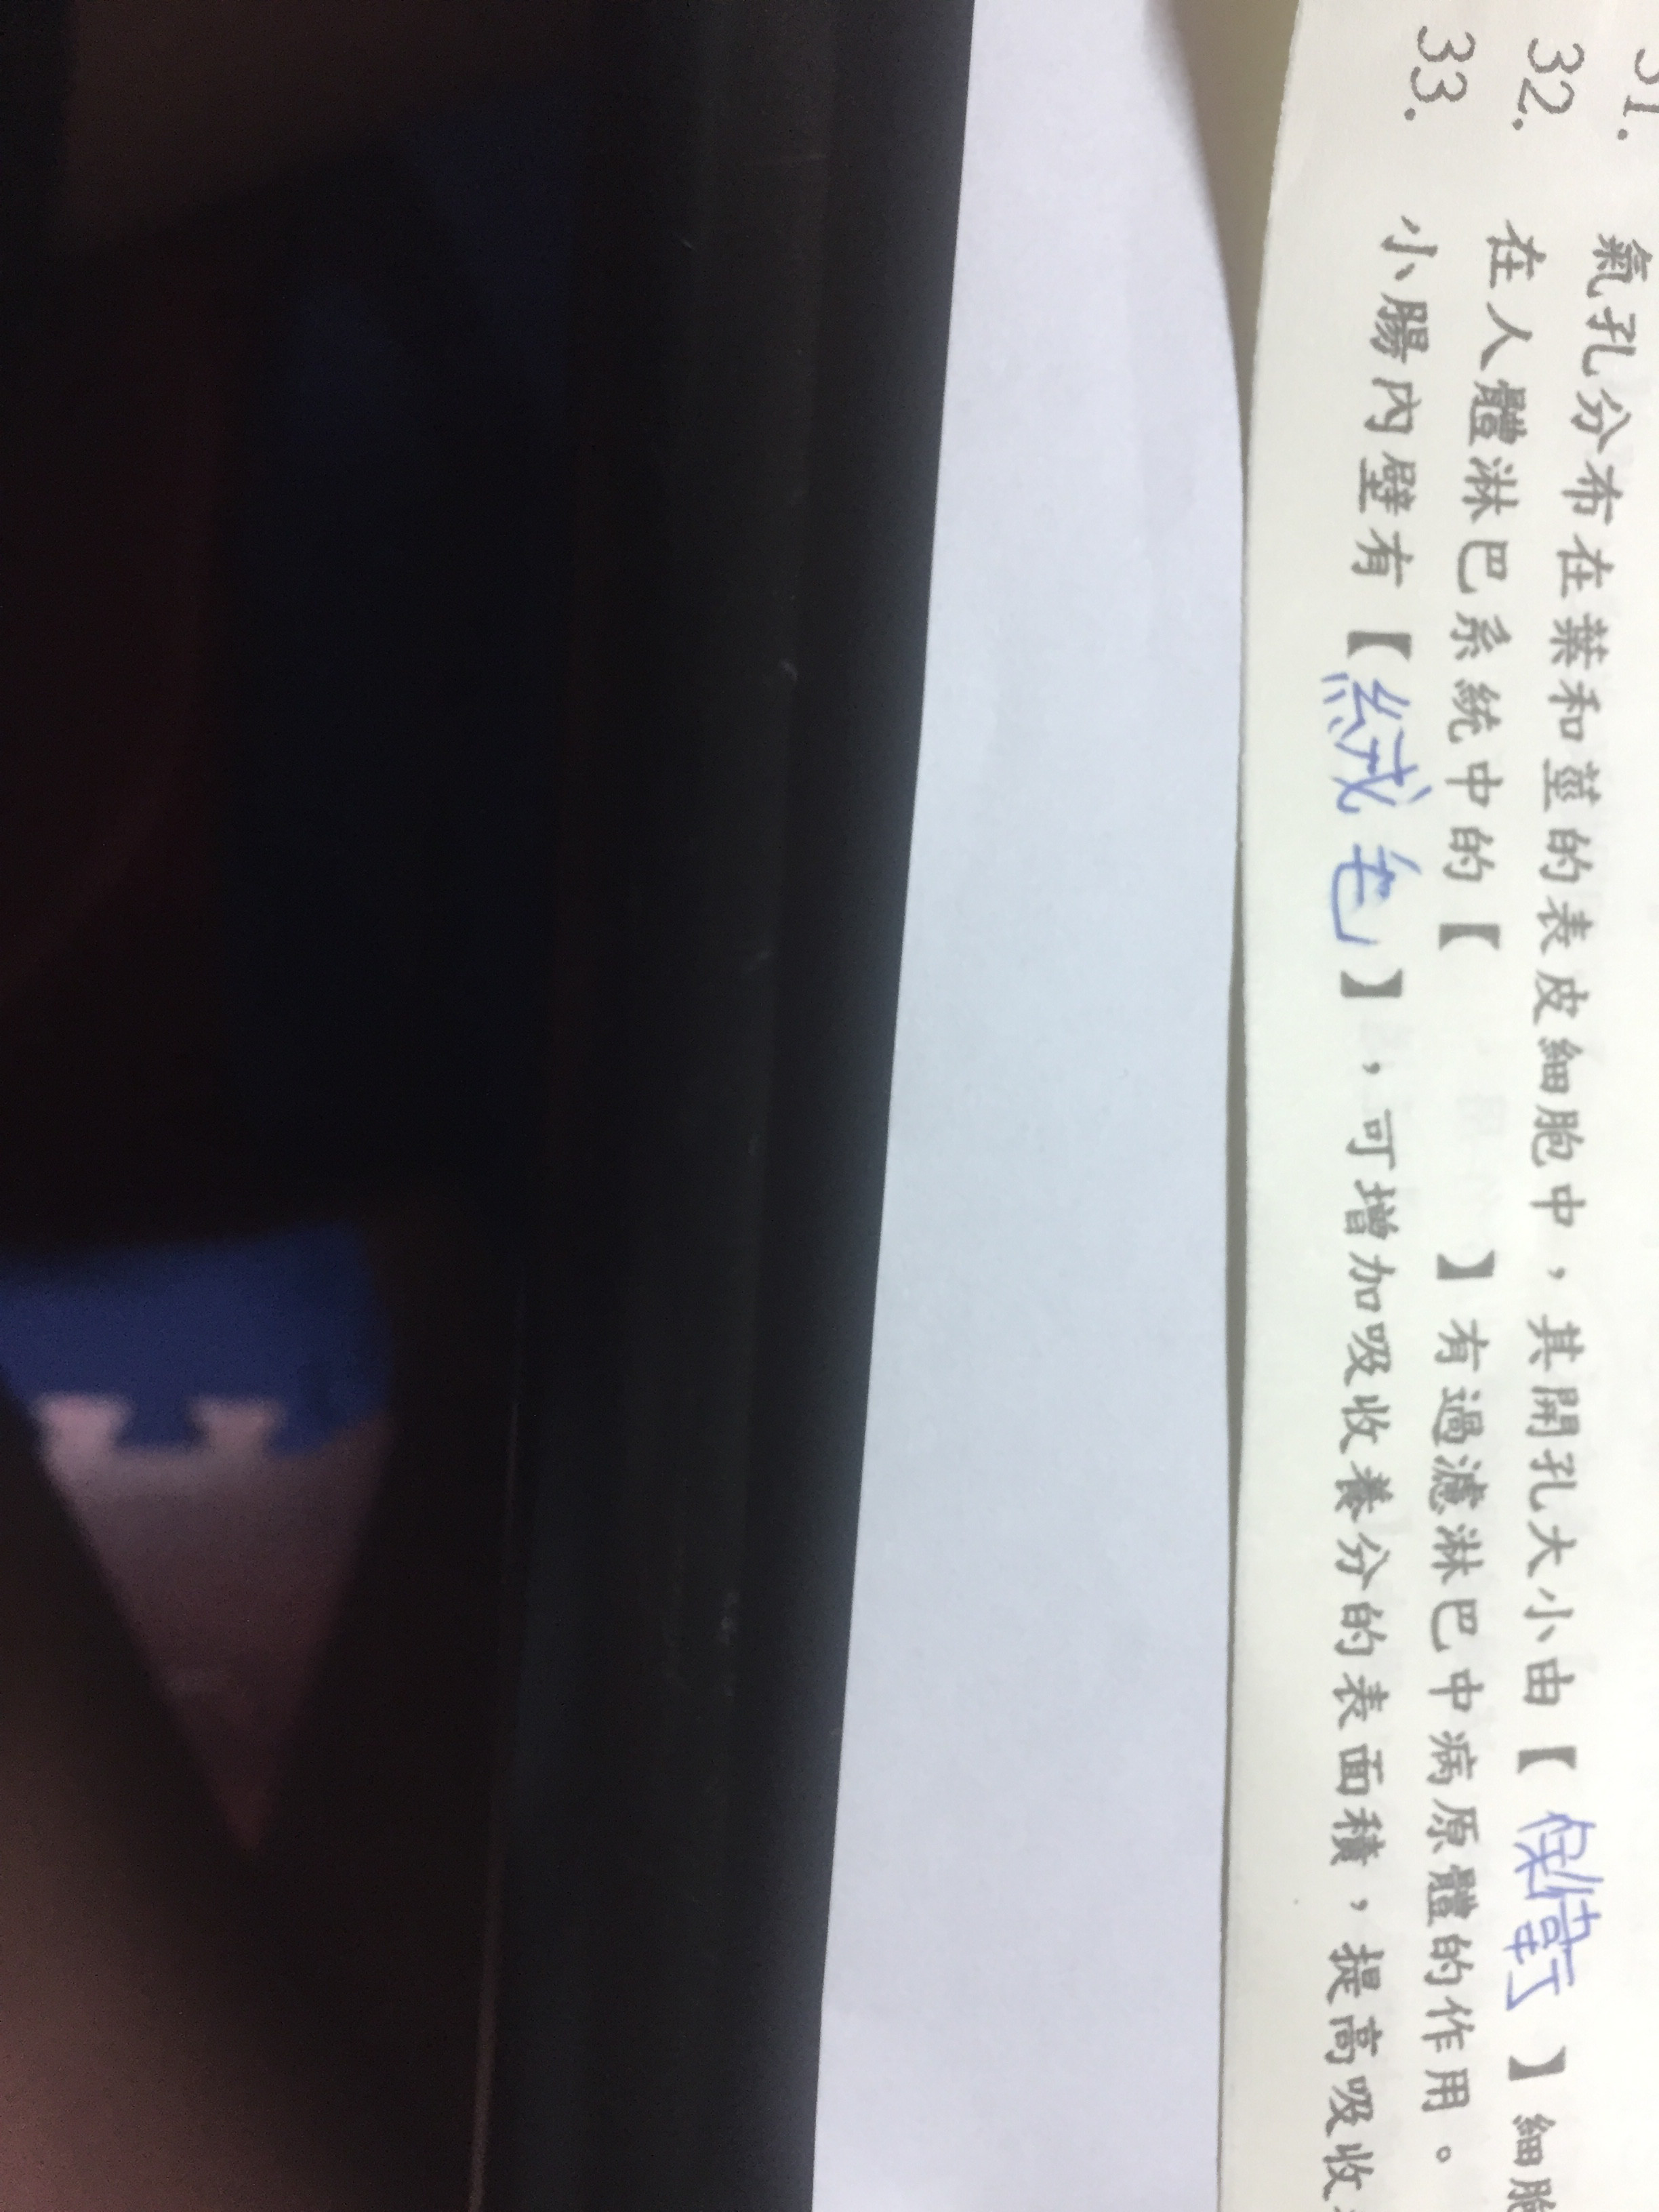 31. 氣孔分布在葉和莖的表皮細胞中，其開孔大小由【保衛】細胞
32. 在人體淋巴系統中的【 】有過濾淋巴中病原體的作用。
33. 小腸內壁有【絨毛】，可增加吸收養分的表面積，提高吸收